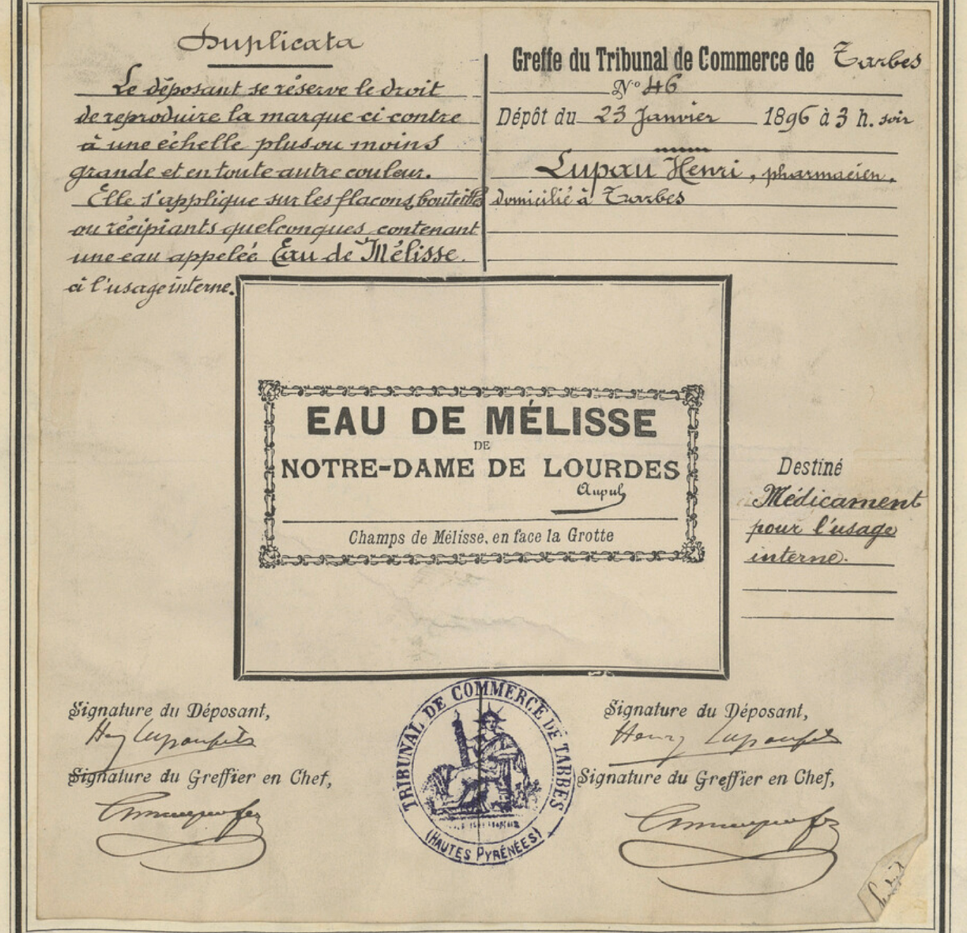 Duplicata
Le déposant se réserve le droit
de reproduire la marque ci contre
à une échelle plus ou moins
grande et en toute autre couleur.
Elle s'applique sur les flacons, bouteilles
ou récipiants quelconques contenant
une eau appelée Eau de Mélisse.
à l'usage interne.
Greffe du Tribunal de Commerce de Tarbes
N° 46
Dépôt du 23 Janvier 1896 à 3 h. soir
Lupau Henri, pharmacien,
domicilié à Tarbes
EAU DE MÉLISSE
DE
NOTRE-DAME DE LOURDES
Champs de Mélisse, en face la Grotte
Destiné
Médicament
pour l'usage
interne.
Signature du Déposant,
Signature du Greffier en Chef,
TRIBUNAL DE COMMERCE DE TARBES
(HAUTES PYRÉNÉES)
Signature du Déposant,
Henry
Signature du Greffier en Chef,